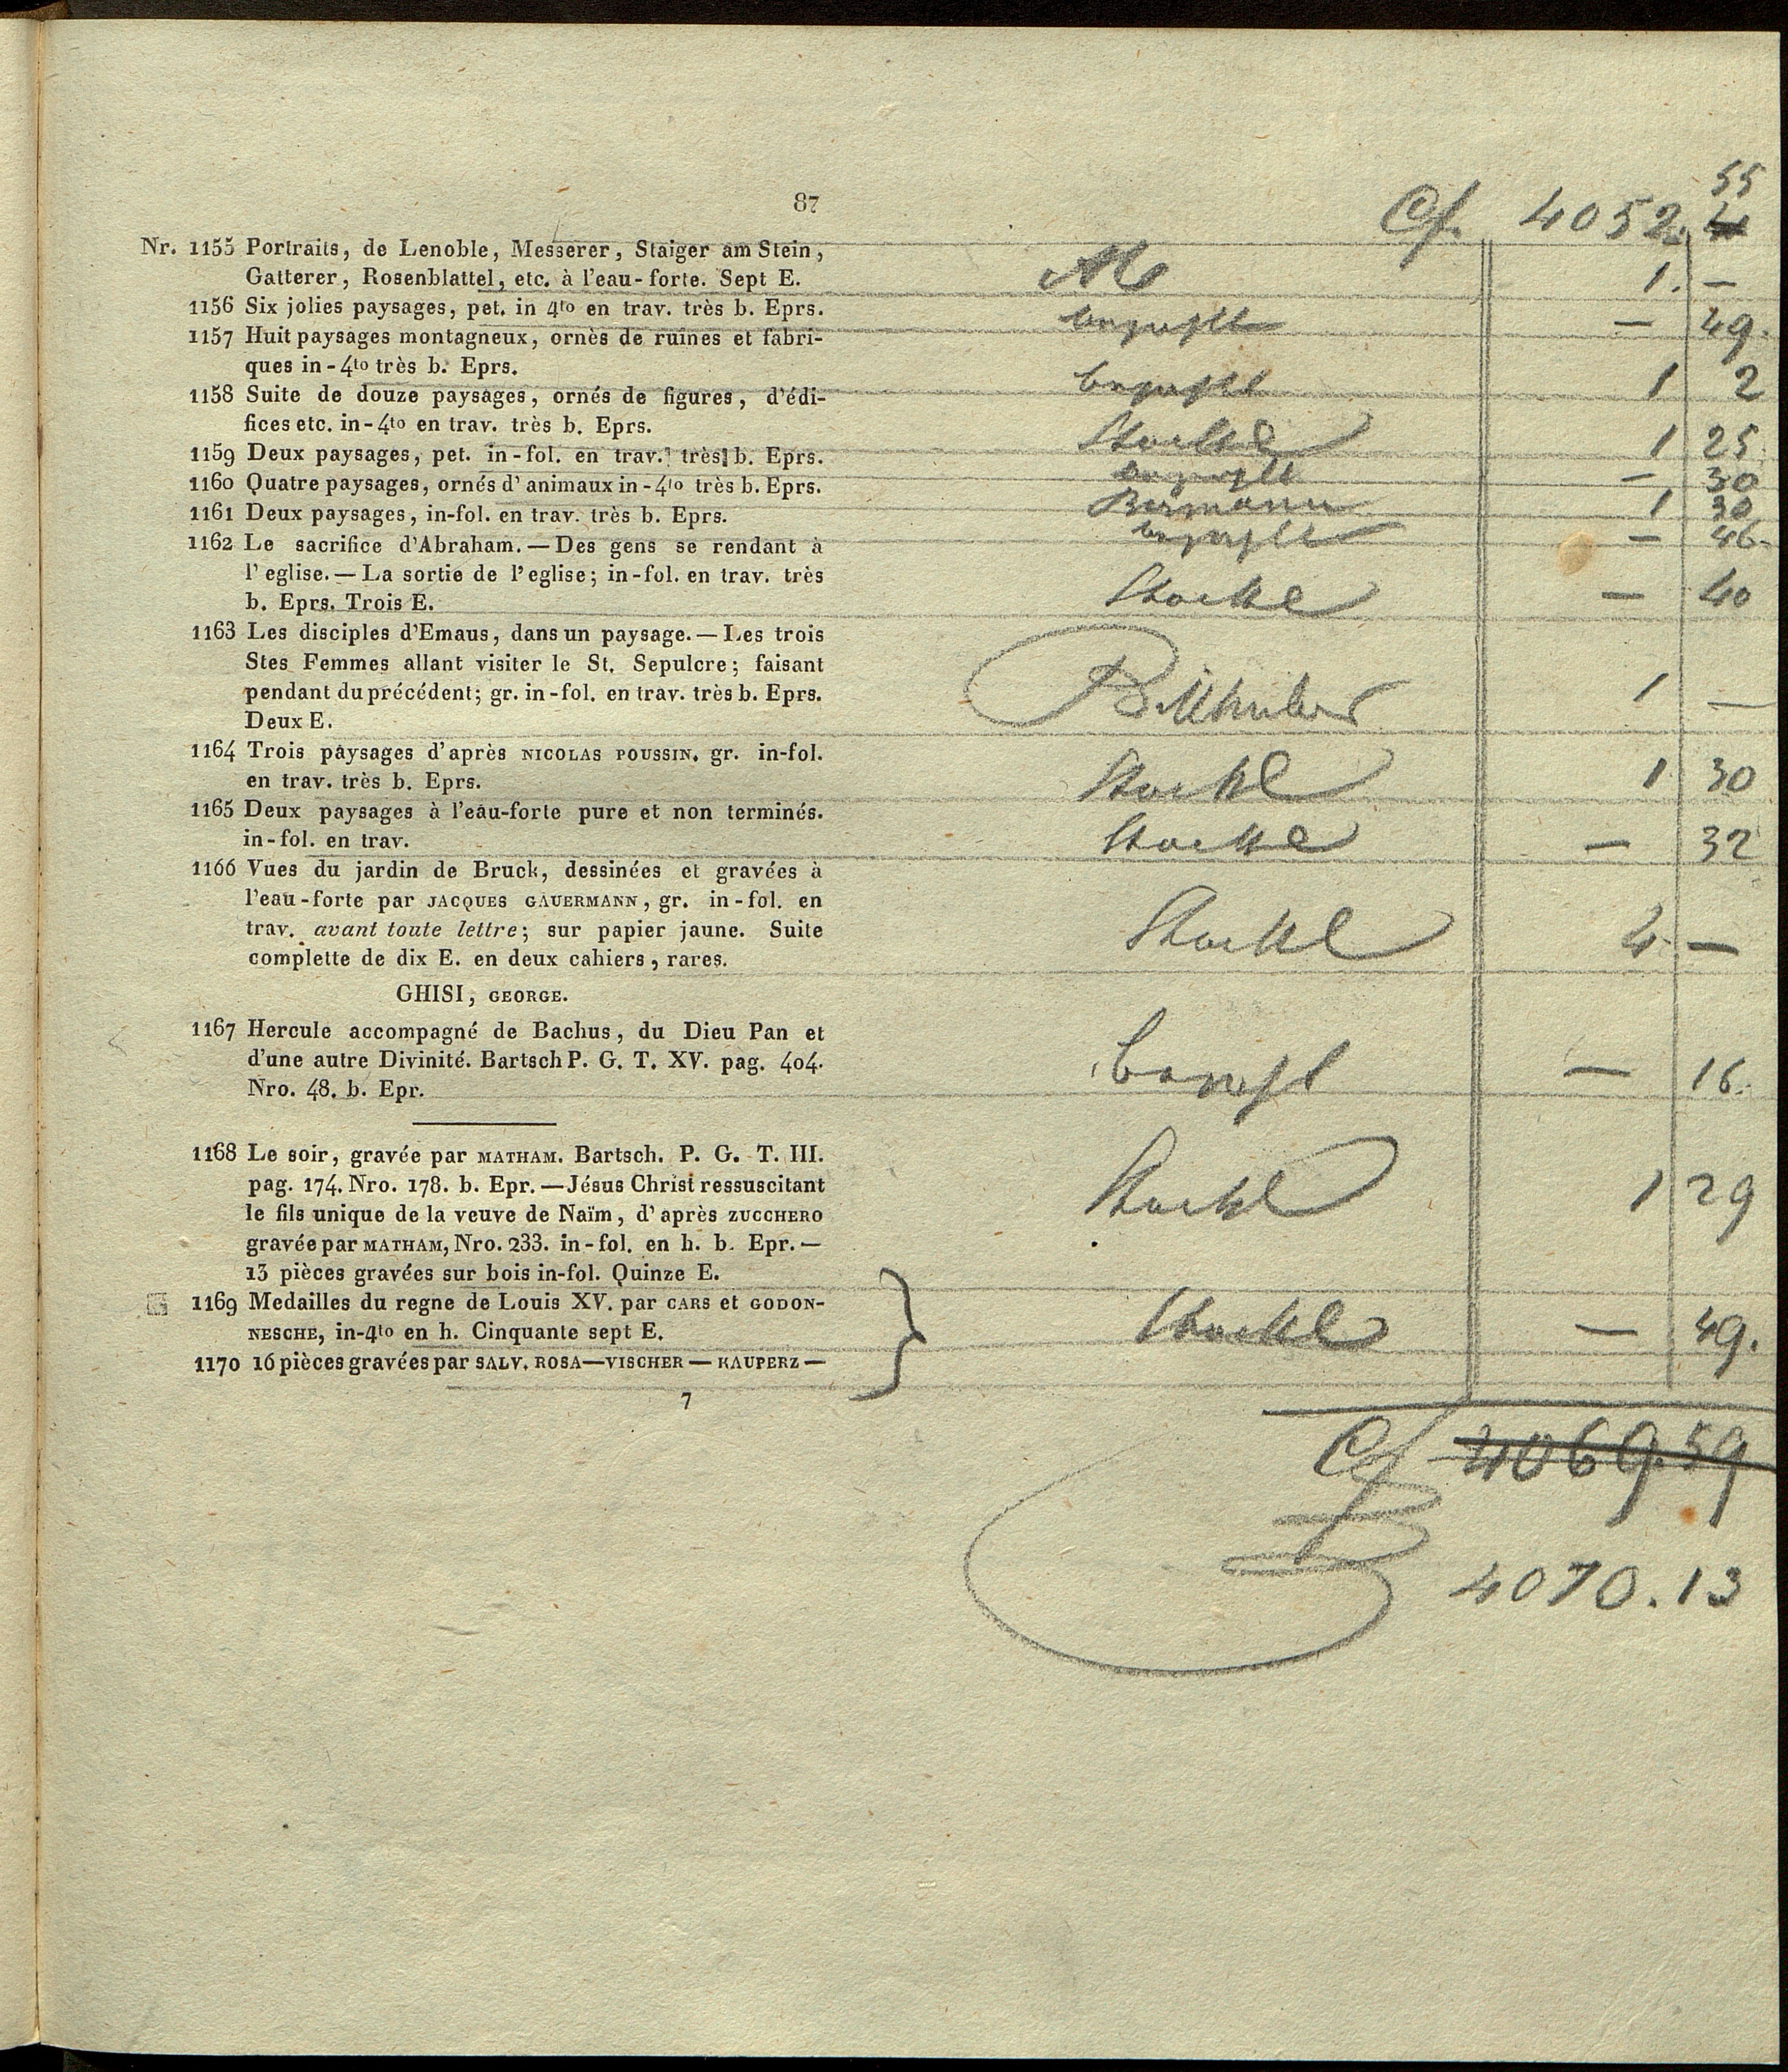 87
Cf. 4052. 55
Nr. 1155 Portraits, de Lenoble, Messerer, Staiger am Stein,
Gatterer, Rosenblattel, etc. à l'eau-forte. Sept E. 1. —
1156 Six jolies paysages, pet. in 4to en trav. très b. Eprs. — 49.
1157 Huit paysages montagneux, ornès de ruines et fabri-
ques in-4to très b. Eprs. 1 2
1158 Suite de douze paysages, ornés de figures, d'édi-
fices etc. in-4to en trav. très b. Eprs. Stoeckl 1 25
1159 Deux paysages, pet. in-fol. en trav. très b. Eprs. — 30
1160 Quatre paysages, ornés d'animaux in-4to très b. Eprs. Bermann 1 30
1161 Deux paysages, in-fol. en trav. très b. Eprs. — 46.
1162 Le sacrifice d'Abraham. — Des gens se rendant à
l'eglise. — La sortie de l'eglise; in-fol. en trav. très
b. Eprs. Trois E. Stoeckl — 40
1163 Les disciples d'Emaus, dans un paysage. — Les trois
Stes Femmes allant visiter le St. Sepulcre; faisant
pendant du précédent; gr. in-fol. en trav. très b. Eprs.
Deux E. 1 —
1164 Trois paysages d'après NICOLAS POUSSIN. gr. in-fol.
en trav. très b. Eprs. Stoeckl 1 30
1165 Deux paysages à l'eau-forte pure et non terminés.
in-fol. en trav. Stoeckl — 32
1166 Vues du jardin de Bruck, dessinées et gravées à
l'eau-forte par JACQUES GAUERMANN, gr. in-fol. en
trav. avant toute lettre; sur papier jaune. Suite
complette de dix E. en deux cahiers, rares. Stoeckl 4. —
GHISI, GEORGE.
1167 Hercule accompagné de Bachus, du Dieu Pan et
d'une autre Divinité. Bartsch P. G. T. XV. pag. 404.
Nro. 48. b. Epr. — 16.
1168 Le soir, gravée par MATHAM. Bartsch. P. G. T. III.
pag. 174. Nro. 178. b. Epr. — Jésus Christ ressuscitant
le fils unique de la veuve de Naïm, d'après ZUCCHERO
gravée par MATHAM, Nro. 233. in-fol. en h. b. Epr. —
13 pièces gravées sur bois in-fol. Quinze E. Stoeckl 1 29
1169 Medailles du regne de Louis XV. par CARS et GODON-
NESCHE, in-4to en h. Cinquante sept E. Stoeckl — 49.
1170 16 pièces gravées par SALV. ROSA — VISCHER — KAUPERZ —
7
Cf 4069.59
4070.13